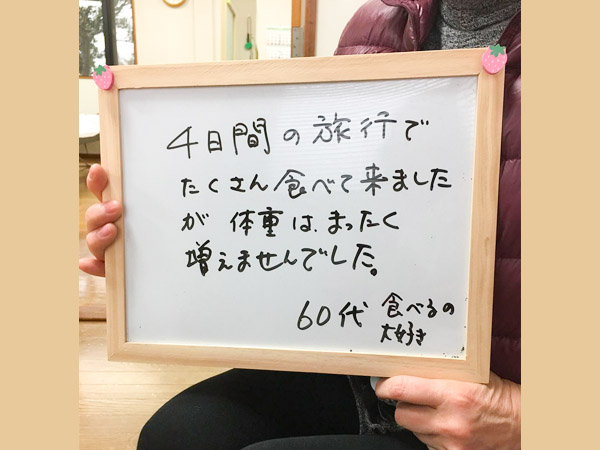 4日間の旅行で
たくさん食べて来ました
が 体重は、まったく
増えませんでした。
60代 食べるの
大好き